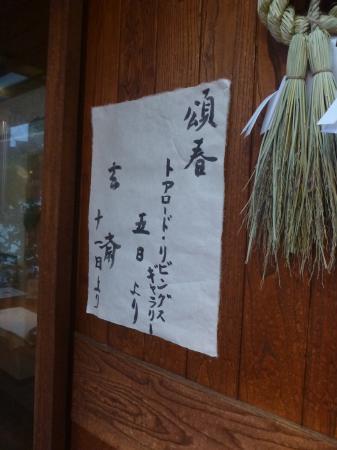 頌春
トアロード・リビングス
ギャラリー
五日より
玄斎
十一日より